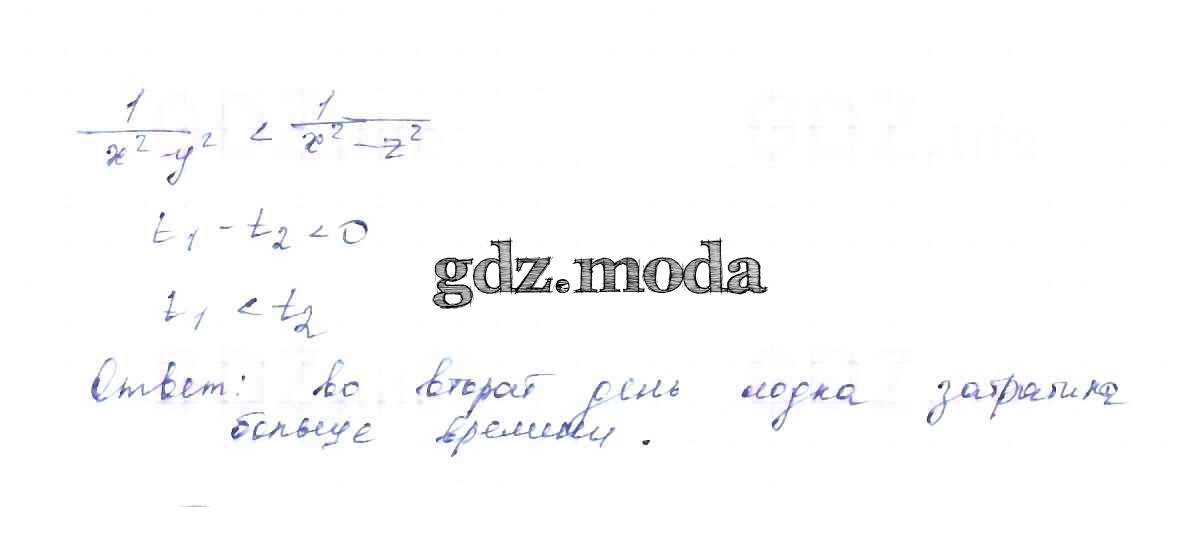 1/(x² - y²) < 1/(x² - z²)
t₁ - t₂ < 0
gdz.moda
t₁ < t₂
Ответ: во второй день лодка затратила
больше времени.